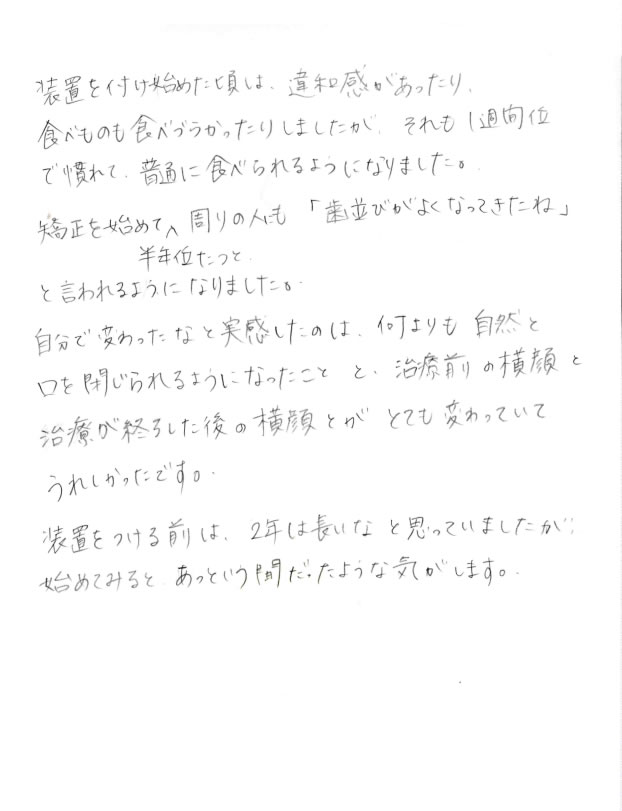 装置を付け始めた頃は、違和感があったり、
食べものも食べづらかったりしましたが、それも1週間位
で慣れて、普通に食べられるようになりました。
矯正を始めて、周りの人にも「歯並びがよくなってきたね」
半年位たつと
と言われるようになりました。
自分で変わったなと実感したのは、何よりも自然と
口を閉じられるようになったことと、治療前の横顔と
治療が終了した後の横顔とがとても変わっていて
うれしかったです。
装置をつける前は、2年は長いなと思っていましたが、
始めてみると、あっという間だったような気がします。